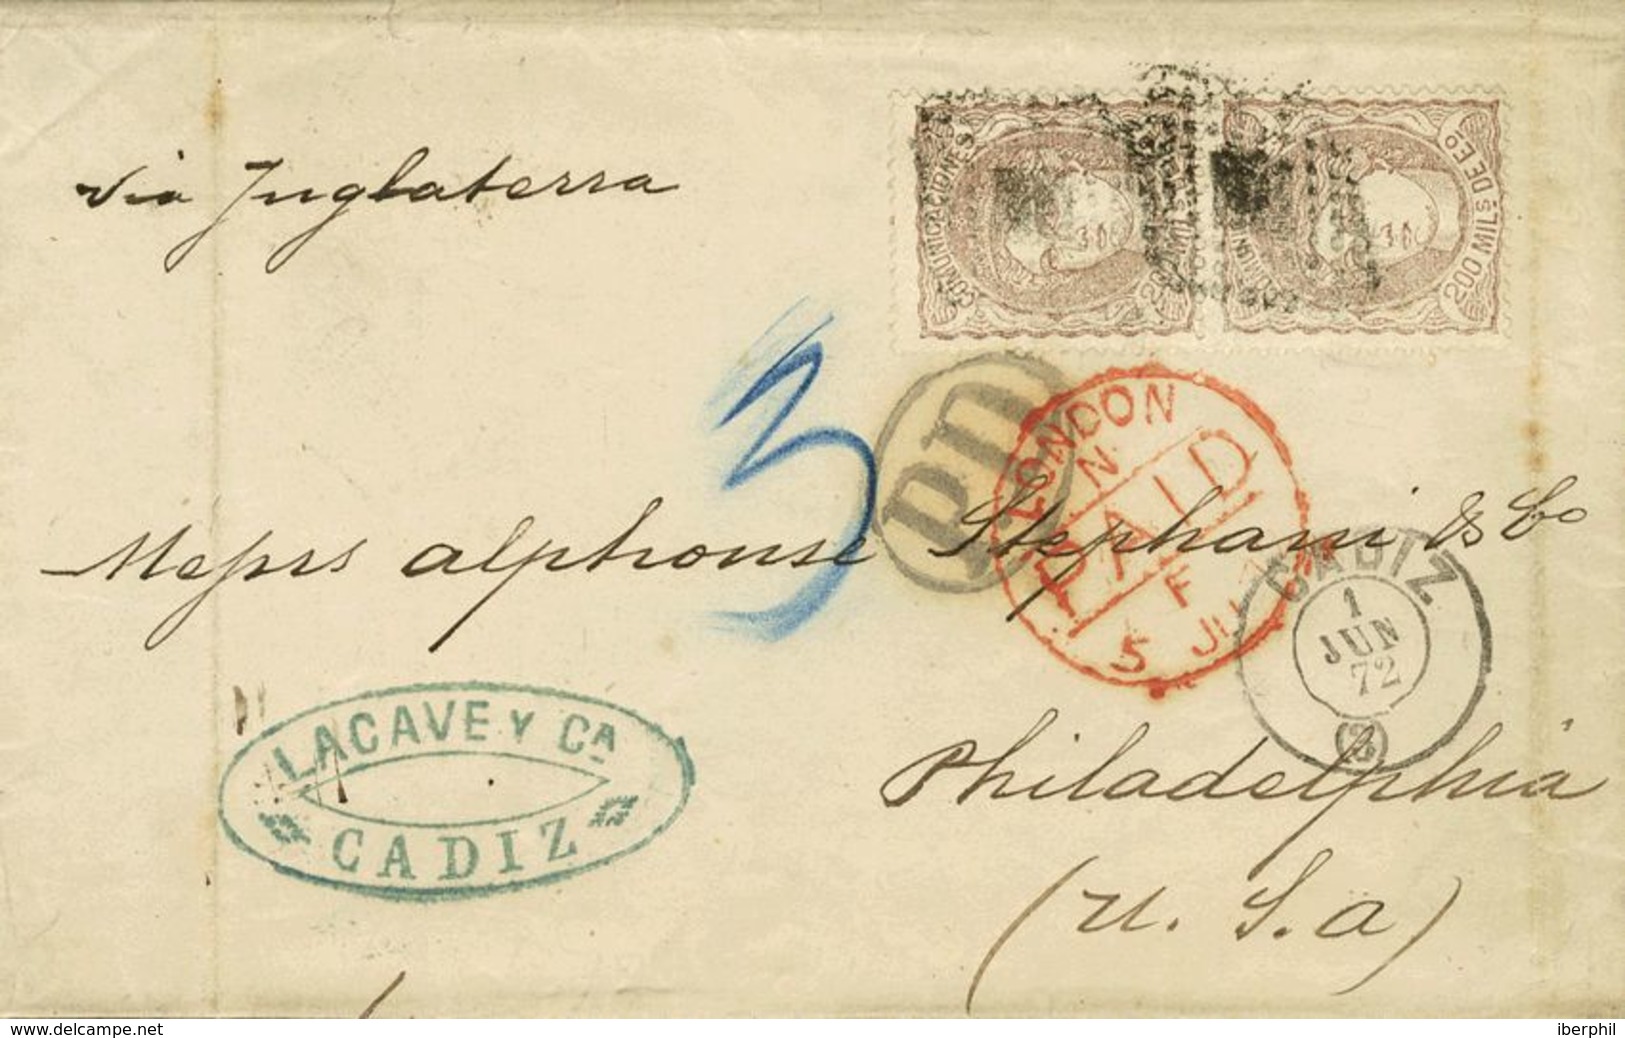 via Inglaterra
COMUNICACIONES
200 MILS DE Eo
3
PD
LONDON
N
PAID
F
5 JU
Messrs Alphonse Stephani & Co
CADIZ
1
JUN
72
(2)
LACAVE Y CA
CADIZ
Philadelphia
(U. S. A)
www.delcampe.net
iberphil